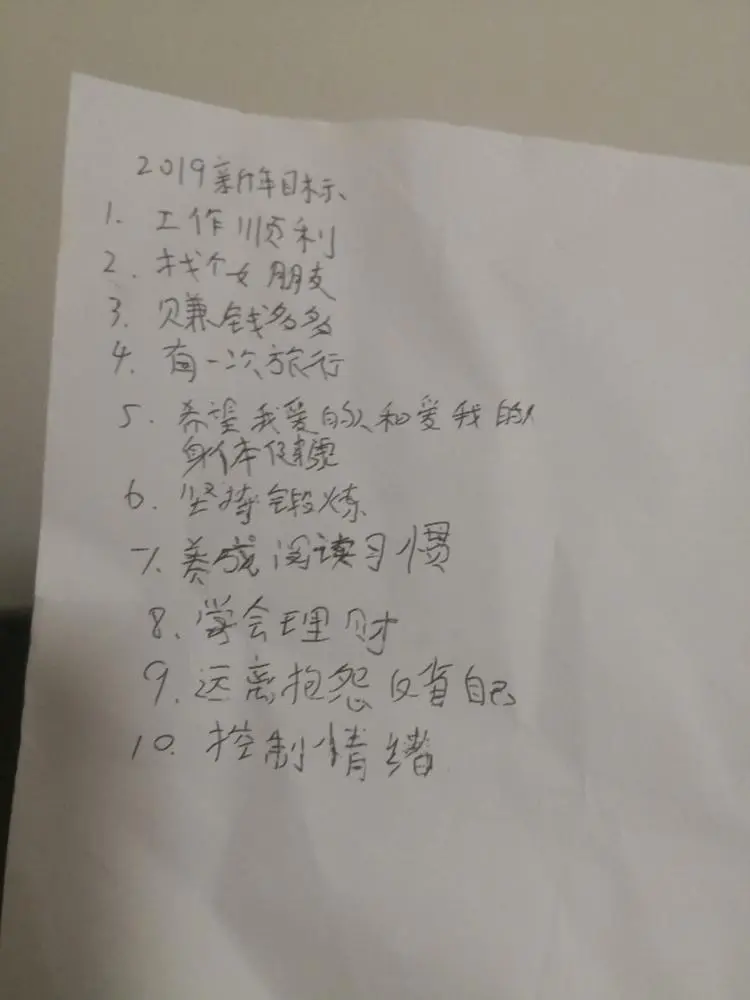 2019新年目标、
1. 工作顺利
2. 找个女朋友
3. 赚钱多多
4. 有一次旅行
5. 希望我爱的人和爱我的人
身体健康
6. 坚持锻炼
7. 养成阅读习惯
8. 学会理财
9. 远离抱怨反省自己
10. 控制情绪